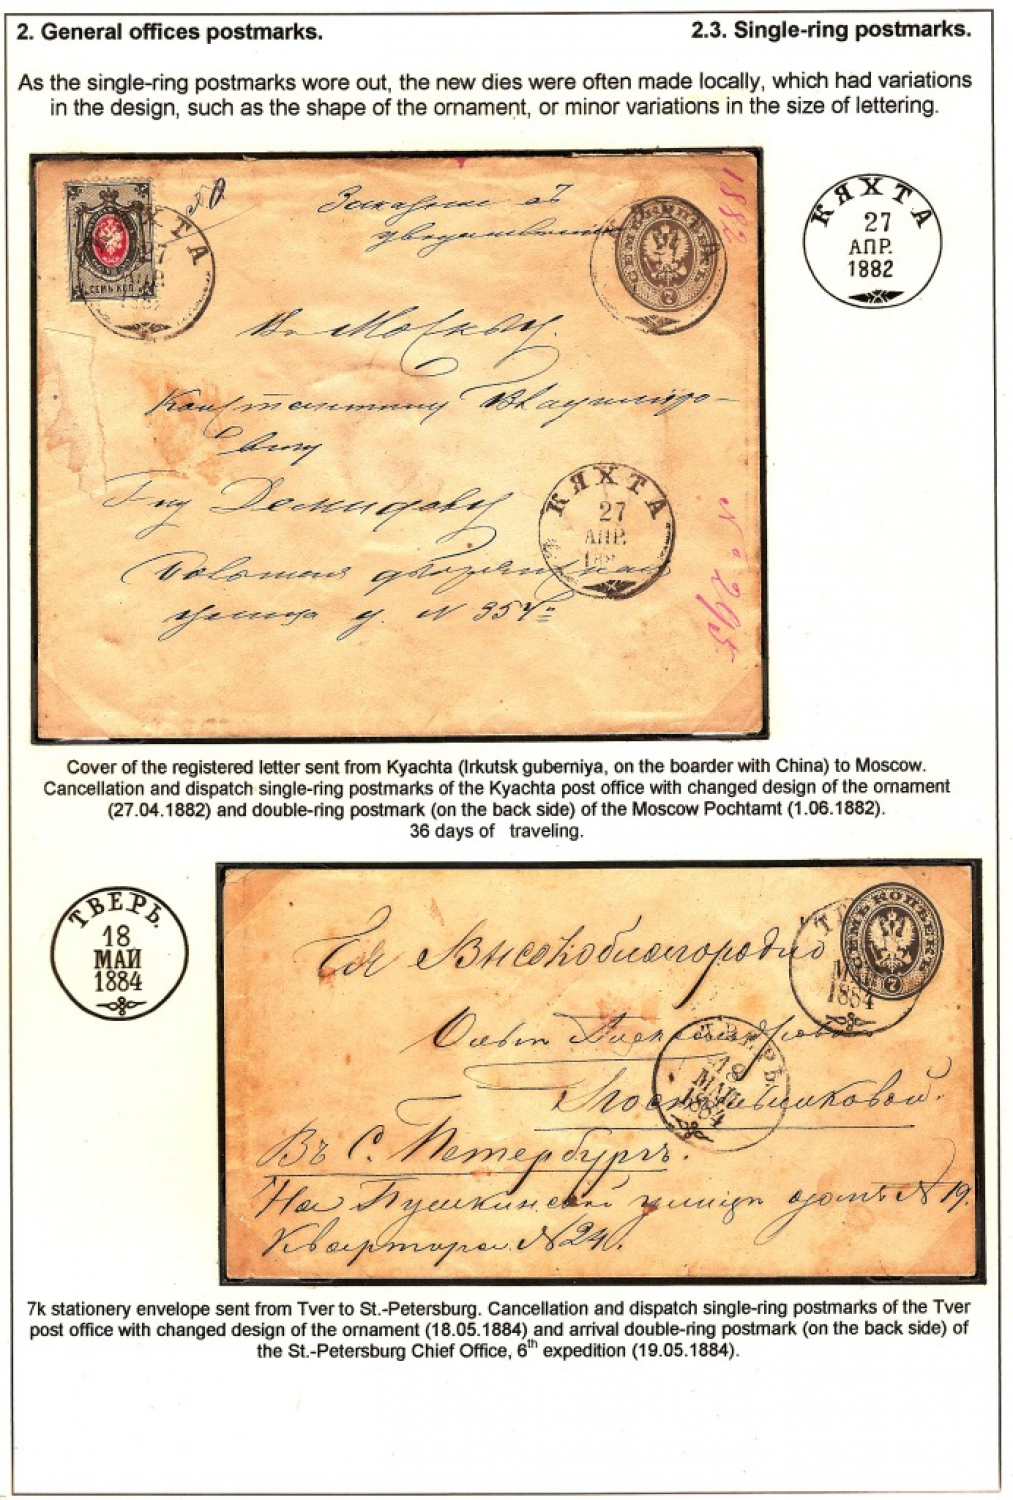 2. General offices postmarks.
2.3. Single-ring postmarks.
As the single-ring postmarks wore out, the new dies were often made locally, which had variations
in the design, such as the shape of the ornament, or minor variations in the size of lettering.
КЯХТА
27
АПР.
1882
СЕМЬ КОП.
Заказное съ
1882
СЕМЬ КОПѢЕКЪ
7
Въ Москву.
Константину
Г-ну Демидову
КЯХТА
27
АПР.
№ 295
улица д. №
Cover of the registered letter sent from Kyachta (Irkutsk guberniya, on the boarder with China) to Moscow.
Cancellation and dispatch single-ring postmarks of the Kyachta post office with changed design of the ornament
(27.04.1882) and double-ring postmark (on the back side) of the Moscow Pochtamt (1.06.1882).
36 days of traveling.
ТВЕРЬ.
18
МАЙ
1884
СЕМЬ КОПѢЕКЪ
7
МАЙ
1884
Ея Высокоблагородію
ТВЕРЬ.
18
МАЙ
1884
Въ С. Петербургъ.
На Пушкинской улицѣ домъ № 19.
Квартира № 24.
7k stationery envelope sent from Tver to St.-Petersburg. Cancellation and dispatch single-ring postmarks of the Tver
post office with changed design of the ornament (18.05.1884) and arrival double-ring postmark (on the back side) of
the St.-Petersburg Chief Office, 6th expedition (19.05.1884).